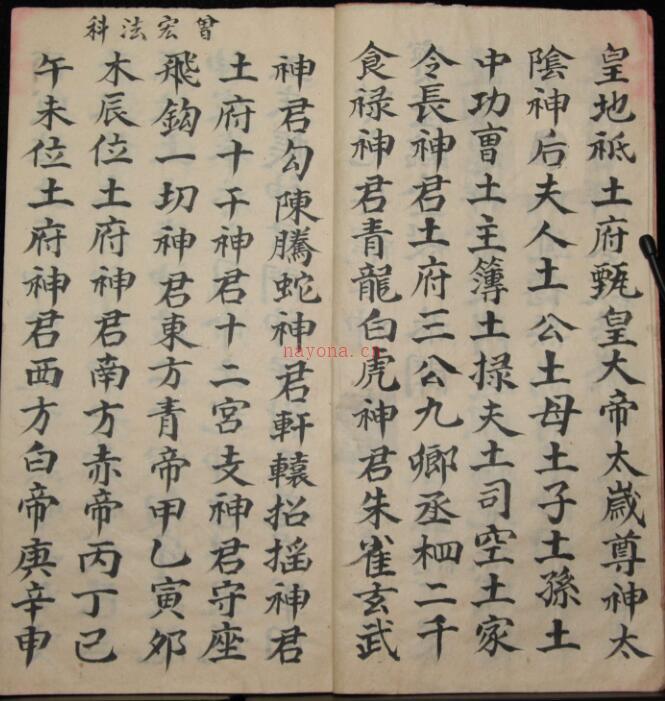 皇地祗土府甄皇大帝太嵗尊神太
陰神后夫人土公土母土子土孫土
中功曹土主簿土掾夫土司空土家
令長神君土府三公九卿丞相二千
食禄神君青龍白虎神君朱雀玄武
曾宏法科
神君勾陳騰蛇神君軒轅招摇神君
土府十干神君十二宮支神君守座
飛鈎一切神君東方青帝甲乙寅夘
木辰位土府神君南方赤帝丙丁巳
午未位土府神君西方白帝庚辛申
nayona.cn